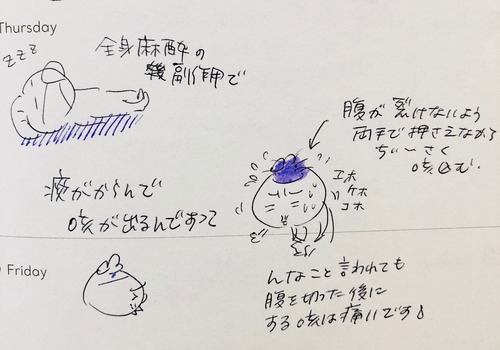 Thursday
zzz
全身麻酔の
副作用で
痰がからんで
咳が出るんであって
腹が裂けないよう
両手で押さえながら
ぢーさく
咳込む。
エホ
ケホ
コホ
Friday
んなこと言われても
腹を切った後に
する咳は痛いです